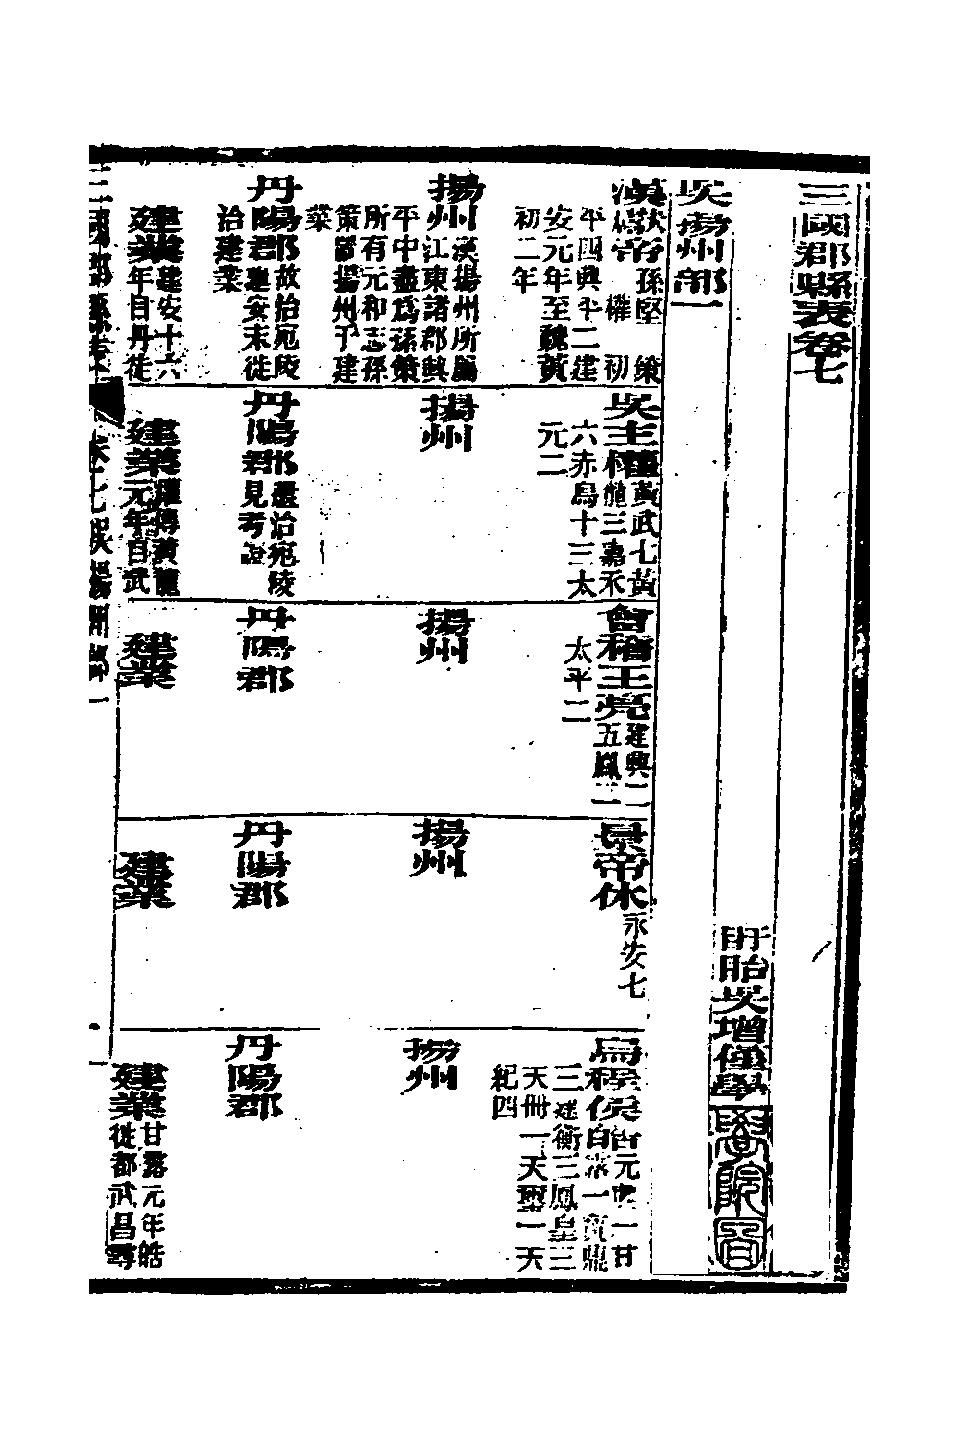 三國郡縣表卷七
盱眙吳增僅學
吳揚州部一
漢獻帝孫堅策權初
平四興平二建
安元年至魏黃
初二年
揚州漢揚州所屬
江東諸郡興
平中盡爲孫策
所有元和志孫
策置揚州于建
業
丹陽郡故治宛陵
建安末徙
治建業
建業建安十六
年自丹徒
吳主權黃武七黃
龍三嘉禾
六赤烏十三太
元二
揚州
丹陽郡還治宛陵
見考證
建業權傳黃龍
元年自武
會稽王亮建興二
五鳳二
太平二
揚州
丹陽郡
建業
景帝休永安七
揚州
丹陽郡
建業
烏程侯皓元興一甘
露一寶鼎
三建衡三鳳皇三
天冊一天璽一天
紀四
揚州
丹陽郡
建業甘露元年皓
徙都武昌尋